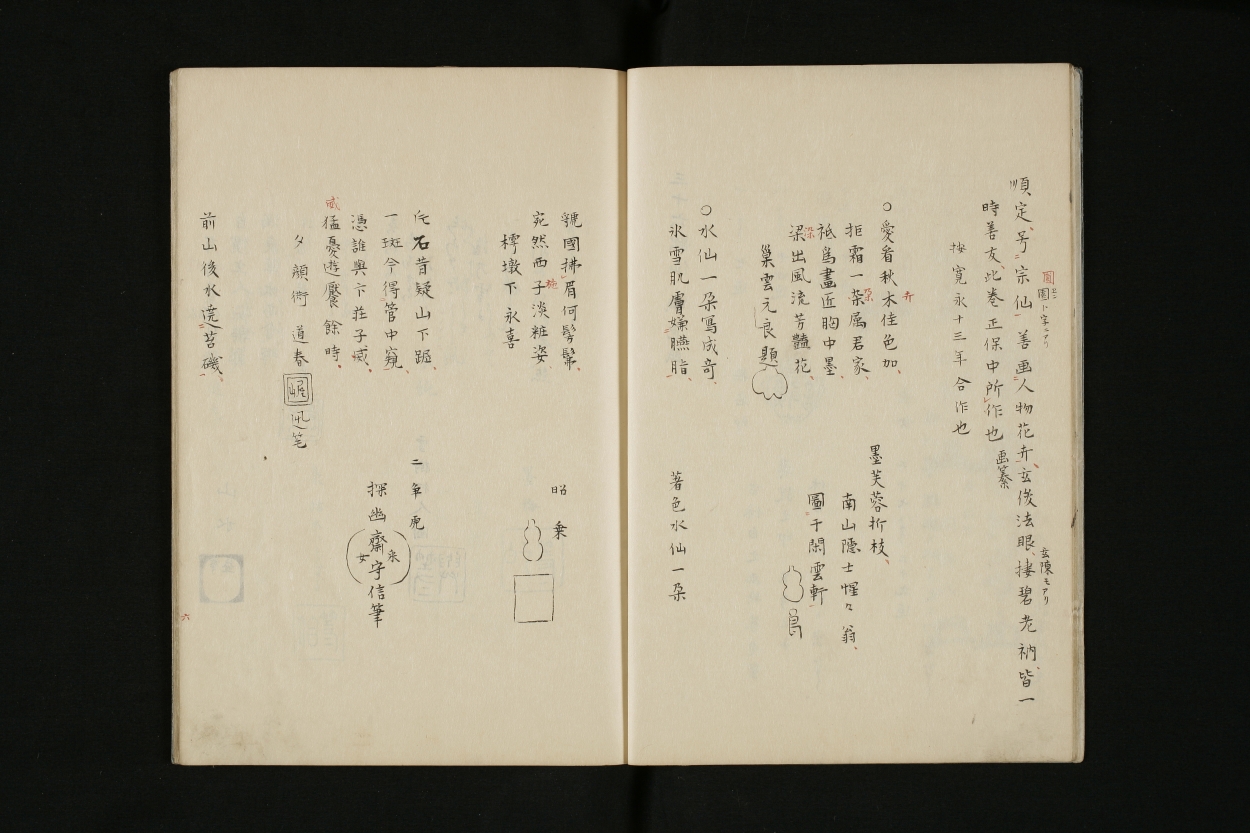 順定号宗仙善画人物花卉玄俊法眼捿碧老衲皆一
圓
圖ト字ニアリ
玄陳モアリ
時善友此巻正保中所作也 画纂
按寛永十三年合作也
○愛看秋木佳色加
卉
拒霜一朶属君家
朶
祗為畫近胸中墨
梁出風流芳豔花
染
巣雲元良題
墨芙蓉折枝
南山隠士惺々翁
圖于閑雲軒
○水仙一朶寫成奇
氷雪肌膚嫌臙脂
著色水仙一朶
號國拂眉何髣髴
宛然西子淡粧姿
施
樗墩下永喜
昭乗
石昔疑山下踞
一斑今得管中窺
憑誰與卞荘子威
猛憂遊饜餘時
威
夕顔衖 道春
二筆虎
探幽齋守信筆
采女
前山後水遶苔磯
六